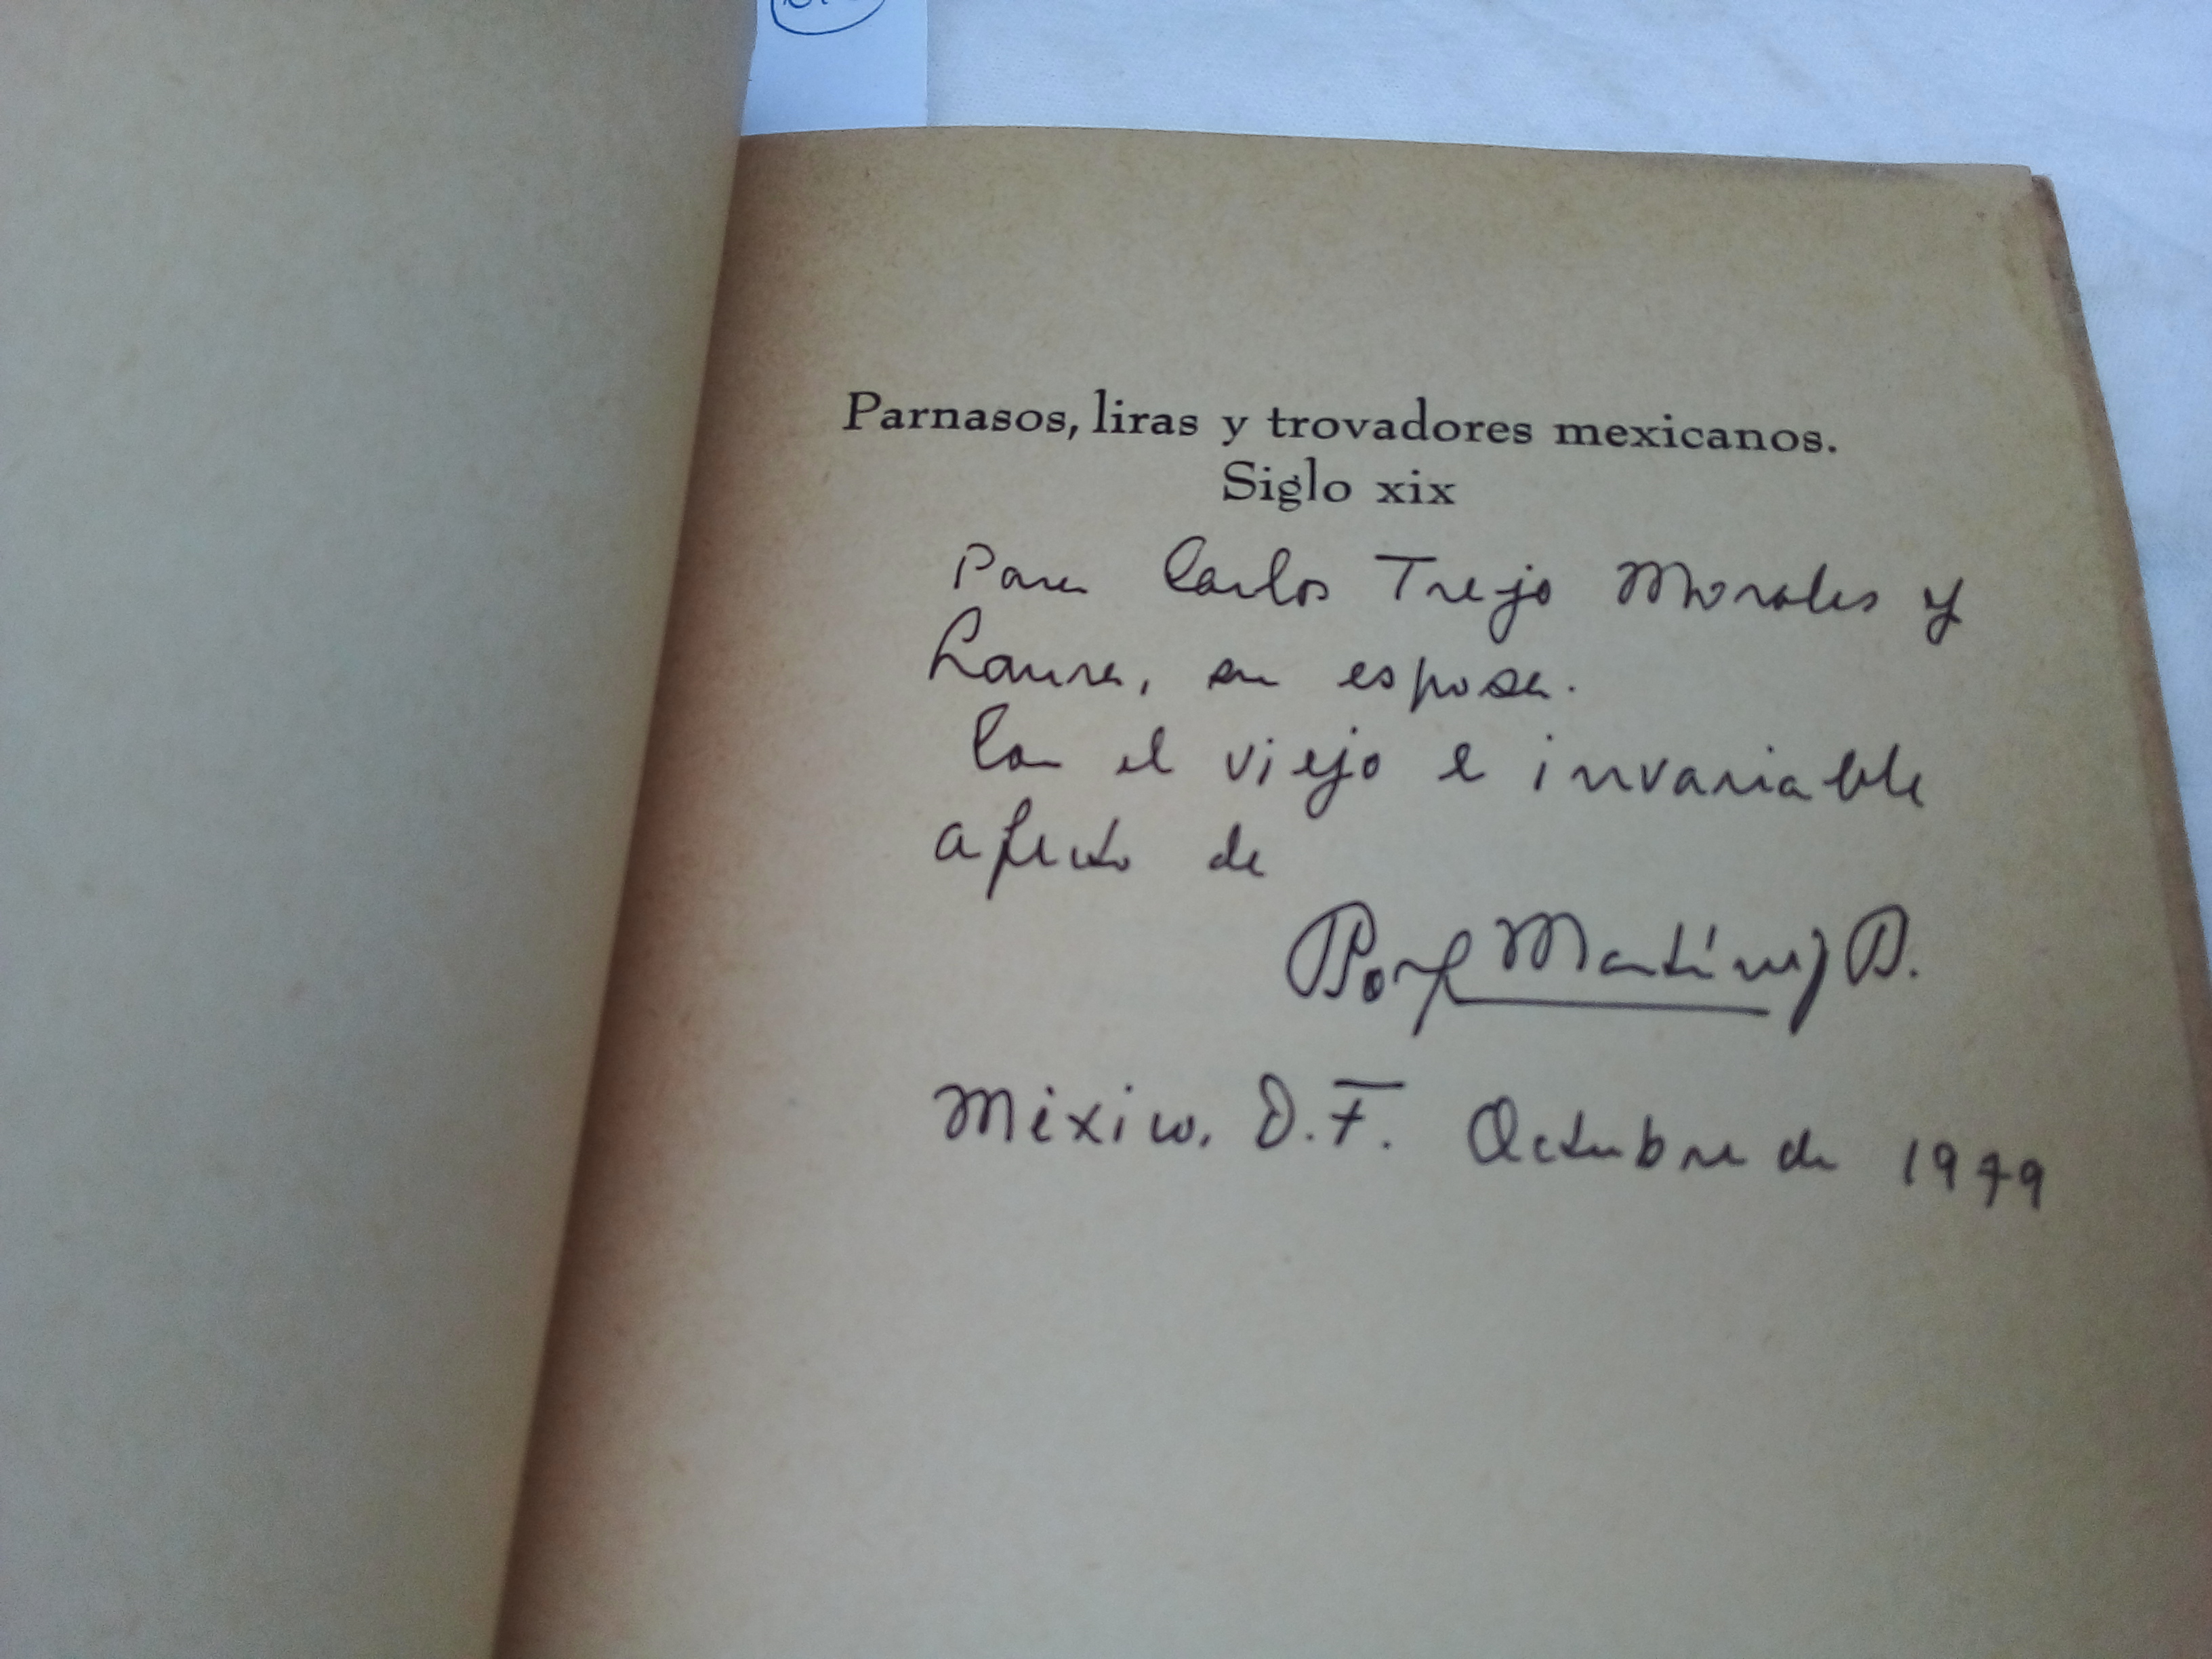 Parnasos, liras y trovadores mexicanos.
Siglo xix
Para Carlos Trejo Morales y
Laura, su esposa.
Con el viejo e invariable
afecto de
Porf Martínez P.
México, D.F. Octubre de 1979